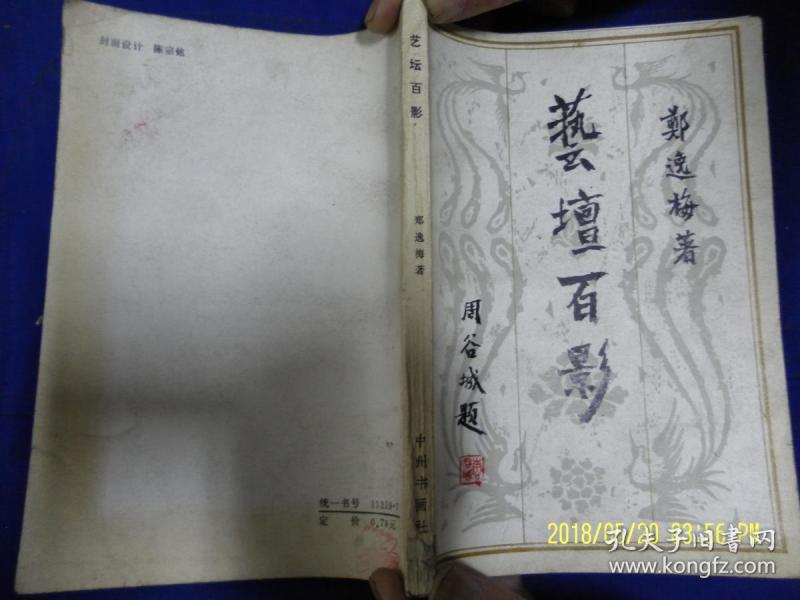 封面设计 陈宗铭
艺坛百影
郑逸梅著
中州书画社
藝壇百影
鄭逸梅著
周谷城題
统一书号
定 价 0.78元
2018/05/20 03:56 PM
孔夫子旧书网
www.kongfz.com